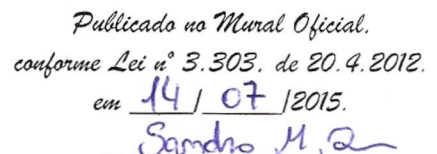 Publicado no Mural Oficial.
conforme Lei nº 3.303, de 20.4.2012.
em 14 / 07 /2015.
Sandro M.